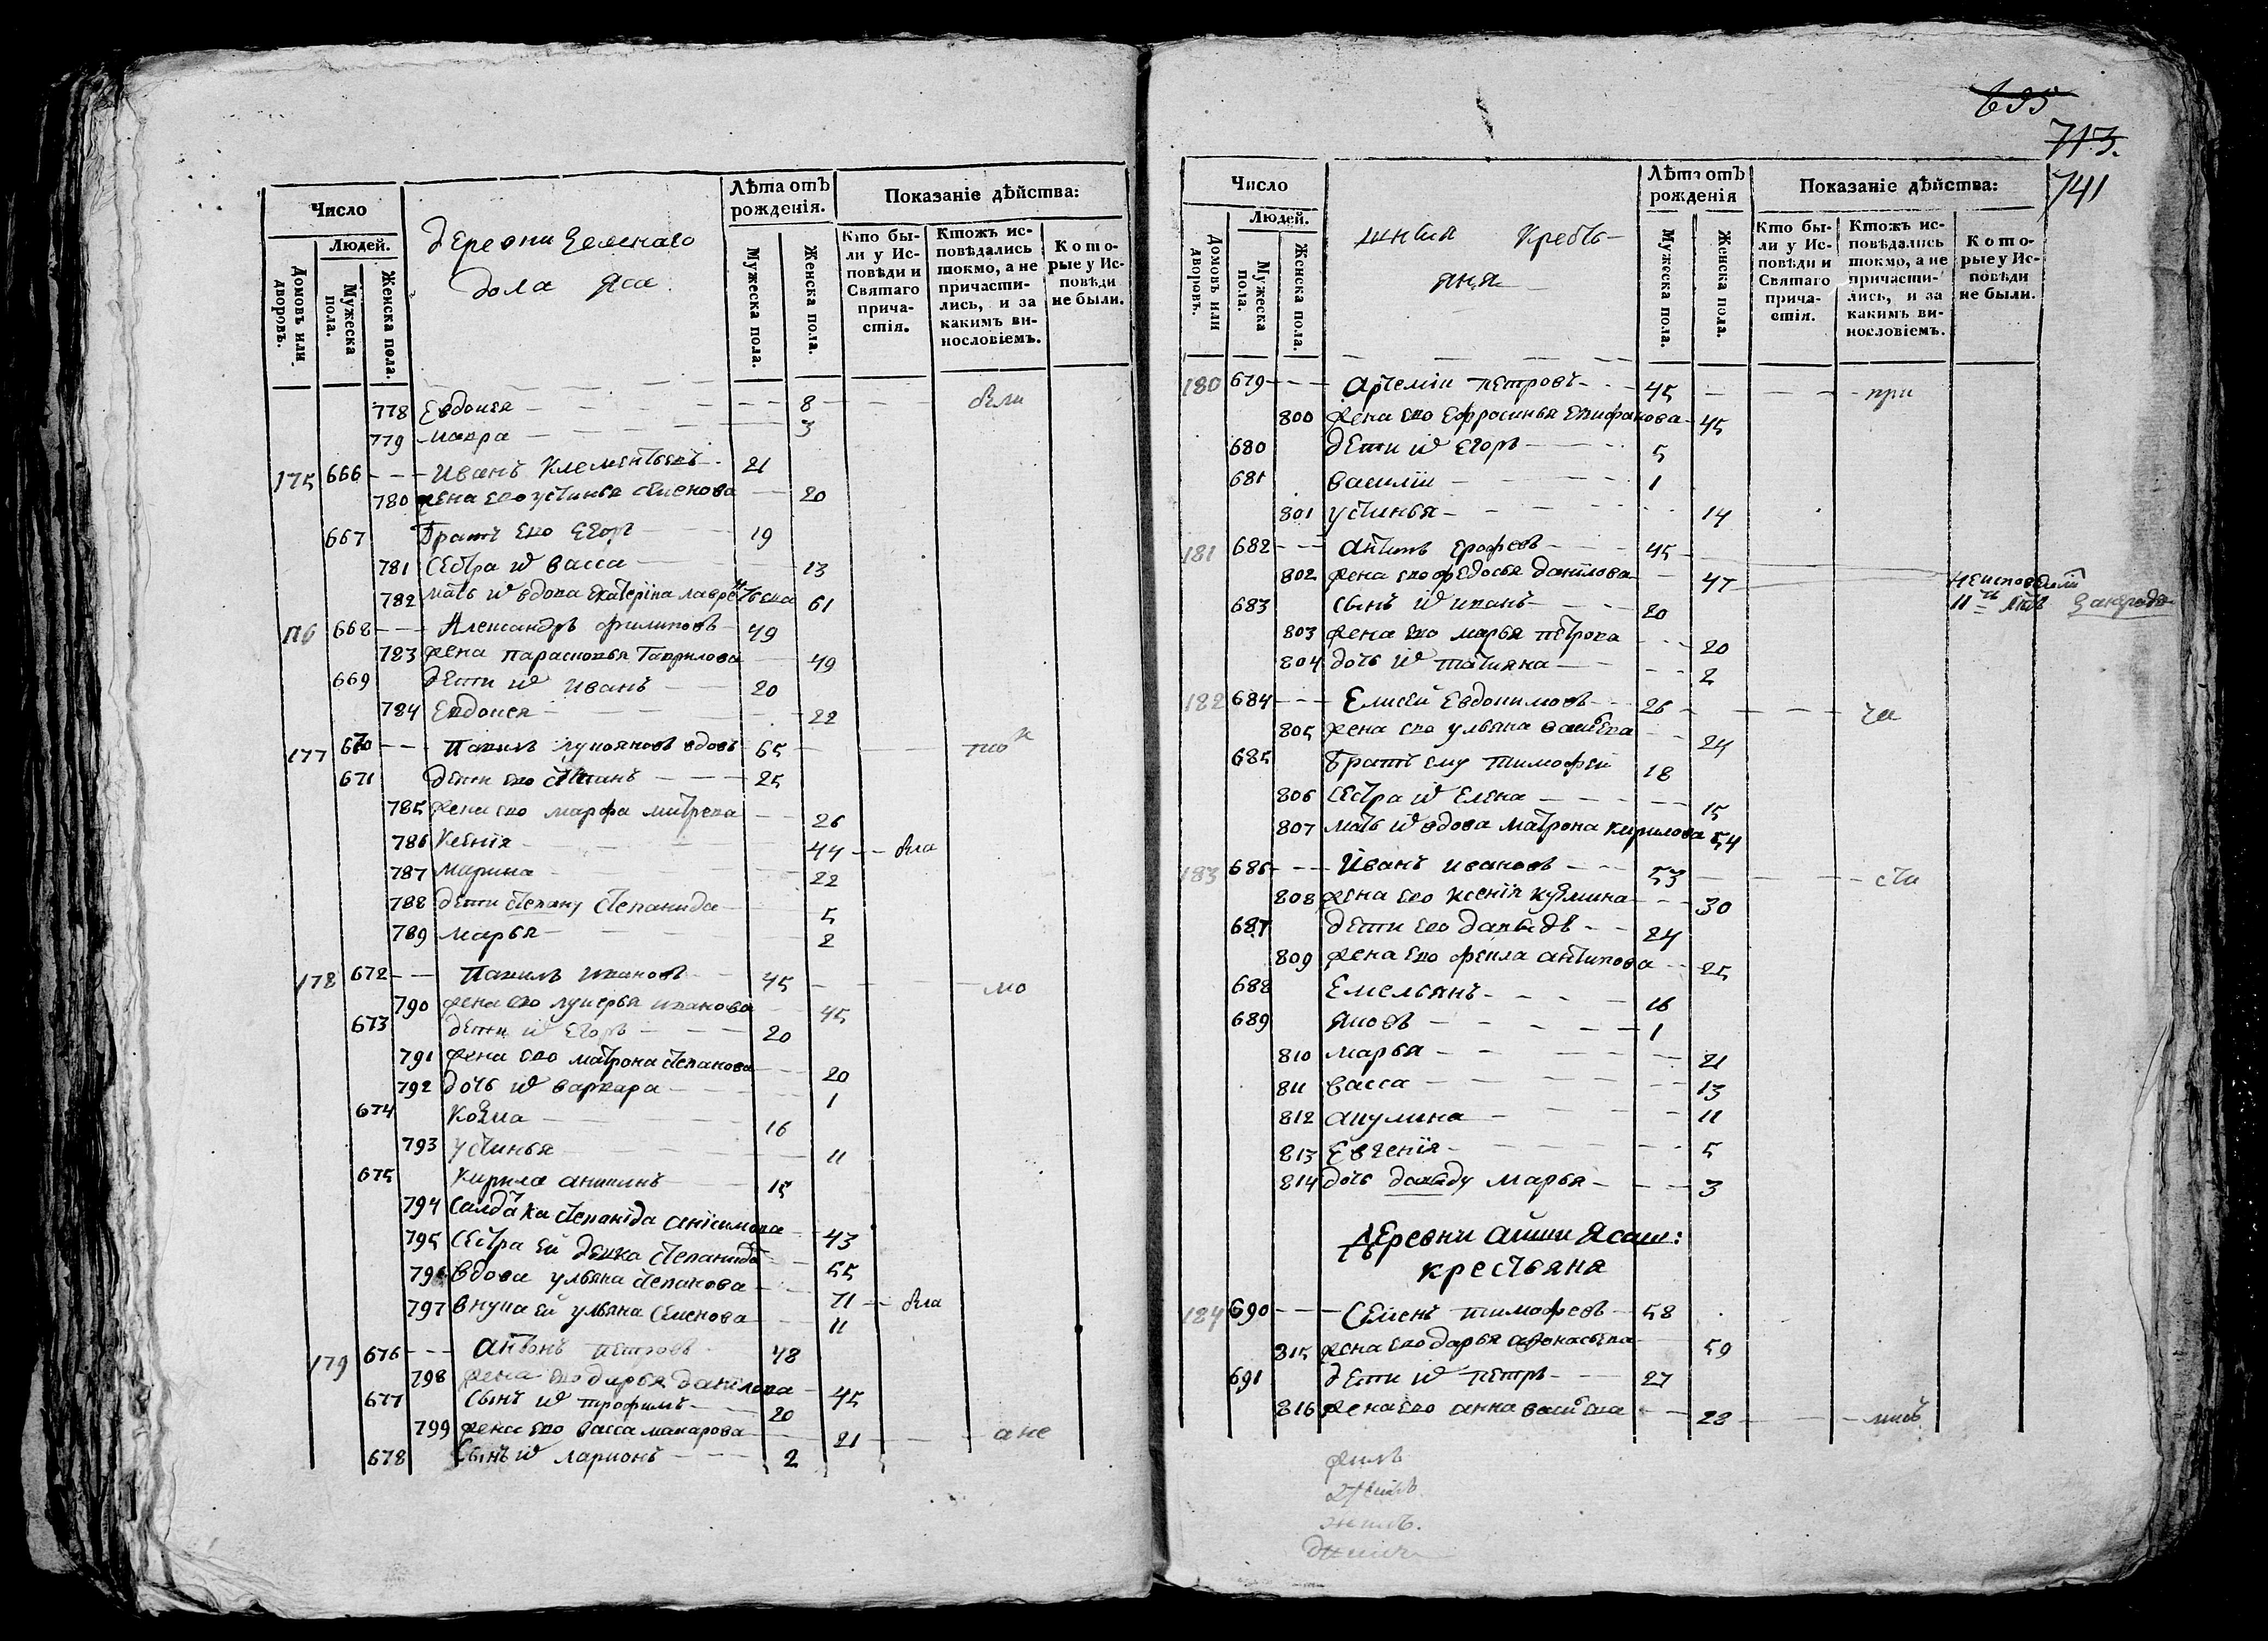 Число
Людей.
Домовъ или дворовъ.
Мужеска пола.
Женска пола.
Деревни Зеленаго
дола Яса
Лѣта отъ рожденія.
Мужеска пола
Женска пола.
Показаніе дѣйства:
Кто были у Исповѣди и Святаго причастія.
Ктожъ исповѣдались токмо, а не причастились, и за какимъ винословіемъ.
Которые у Исповѣди не были.
778 Евдокея 8 были
779 Мавра 3
175 666 Иванъ Клементьевъ 21
780 жена ево устинья семенова 20
667 Братъ ево Егоръ 19
781 Сестра их васса 13
782 мать их вдова Екатерiна лаврентьева 61
176 668 Александръ филиповъ 49
783 жена парасковья Гаврилова 49
669 дети их иванъ 20
784 Евдокея 22
177 670 Павилъ лукояновъ вдовъ 65 ток
671 дети ево степанъ 25
785 жена ево марфа митрева 26
786 Ксенiя 44 была
787 марина 22
788 дети степану степанида 5
789 марья 2
178 672 Павилъ ивановъ 45 мо
790 жена ево лукерья иванова 45
673 дети их Егоръ 20
791 жена ево матрона степанова 20
792 дочь их варвара 1
674 козма 16
793 устинья 11
675 кирила аникинъ 15
794 салдатка степанiда анiсимова 43
795 сестра ей девка степанида 55
796 вдова ульяна степанова 71 была
797 внука ей ульяна семенова 11
179 676 антонъ петровъ 48
798 жена ево дарья данiлова 45
677 сынъ их трофимъ 20
799 жена ево васса макарова 21 а не
678 Сынъ их ларионъ 2
695
713.
741
Число
Людей.
Домовъ или дворовъ.
Мужеска пола.
Женска пола.
шныя кресть-
яня
Лѣта отъ рожденія
Мужеска пола.
Женска пола.
Показаніе дѣйства:
Кто были у Исповѣди и Святаго причастія.
Ктожъ исповѣдались токмо, а не причастились, и за какимъ винословіемъ.
Которые у Исповѣди не были.
180 679 Артемiи петровъ 45 при
800 жена ево Ефросинья Епифанова 45
680 дети их Егоръ 5
681 василiи 1
801 устинья 14
181 682 антипъ ерофеевъ 45
802 жена ево федосья данiлова 47
683 сынъ их иванъ 20
803 жена ево марья петрова 20
804 дочь их татияна 2
182 684 Елисей Евдокимовъ 26 ча
805 жена ево ульяна васильева 24
685 Братъ ему тимофей 18
806 сестра их Елена 15
807 мать их вдова матрона кирилова 54
183 686 Иванъ ивановъ 53 сти
808 жена ево ксенiя кузмина 30
687 дети ево давыдъ 24
809 жена ево фекла антипова 25
688 Емельянъ 16
689 яковъ 1
810 марья 21
811 васса 13
812 акулина 11
813 Евгенiя 5
814 дочь давыду марья 3
Деревни айши Ясаш:
крестьяня
184 690 Семенъ тимофеевъ 58
815 жена ево дарья афонасьева 59
691 дети их петръ 27
816 жена ево анна васильева 28